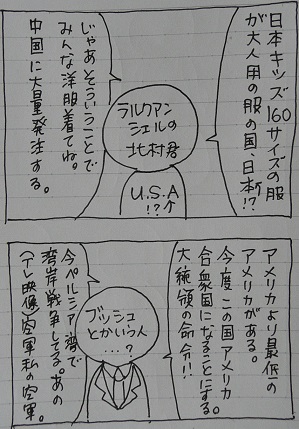 日本キッズ160サイズの服
が大人用の服の国、日本!?
ラルクアン
シェルの
北村君
U.S.A
!?
じゃあそういうことで
みんな洋服着てね。
中国に大量発注する。
アメリカより最低の
アメリカがある。
今度この国アメリカ
合衆国になることにする。
大統領の命令!!
ブッシュ
とかいう人
…?
今ペルシア湾で
湾岸戦争してる。あの
(テレビ映像)空軍私の空軍。